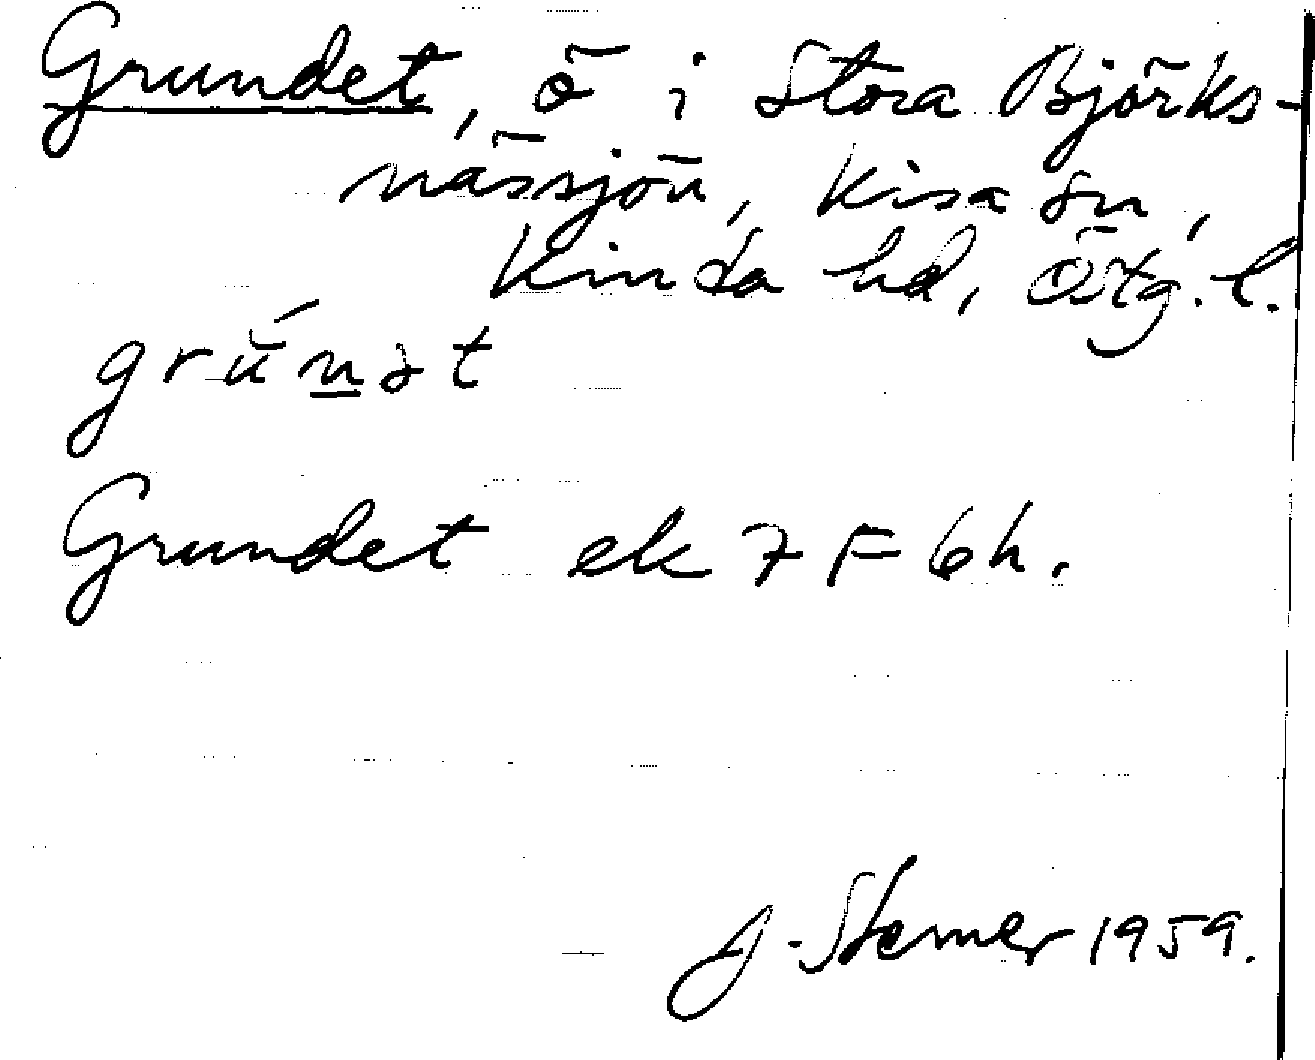 Grundet, ö i Stora Björks-
nässjön, Kisa sn,
Kinda hd, Östg. l.
grŭ́n̲ət
Grundet ek 7 F 6h.
J. Sterner 1959.